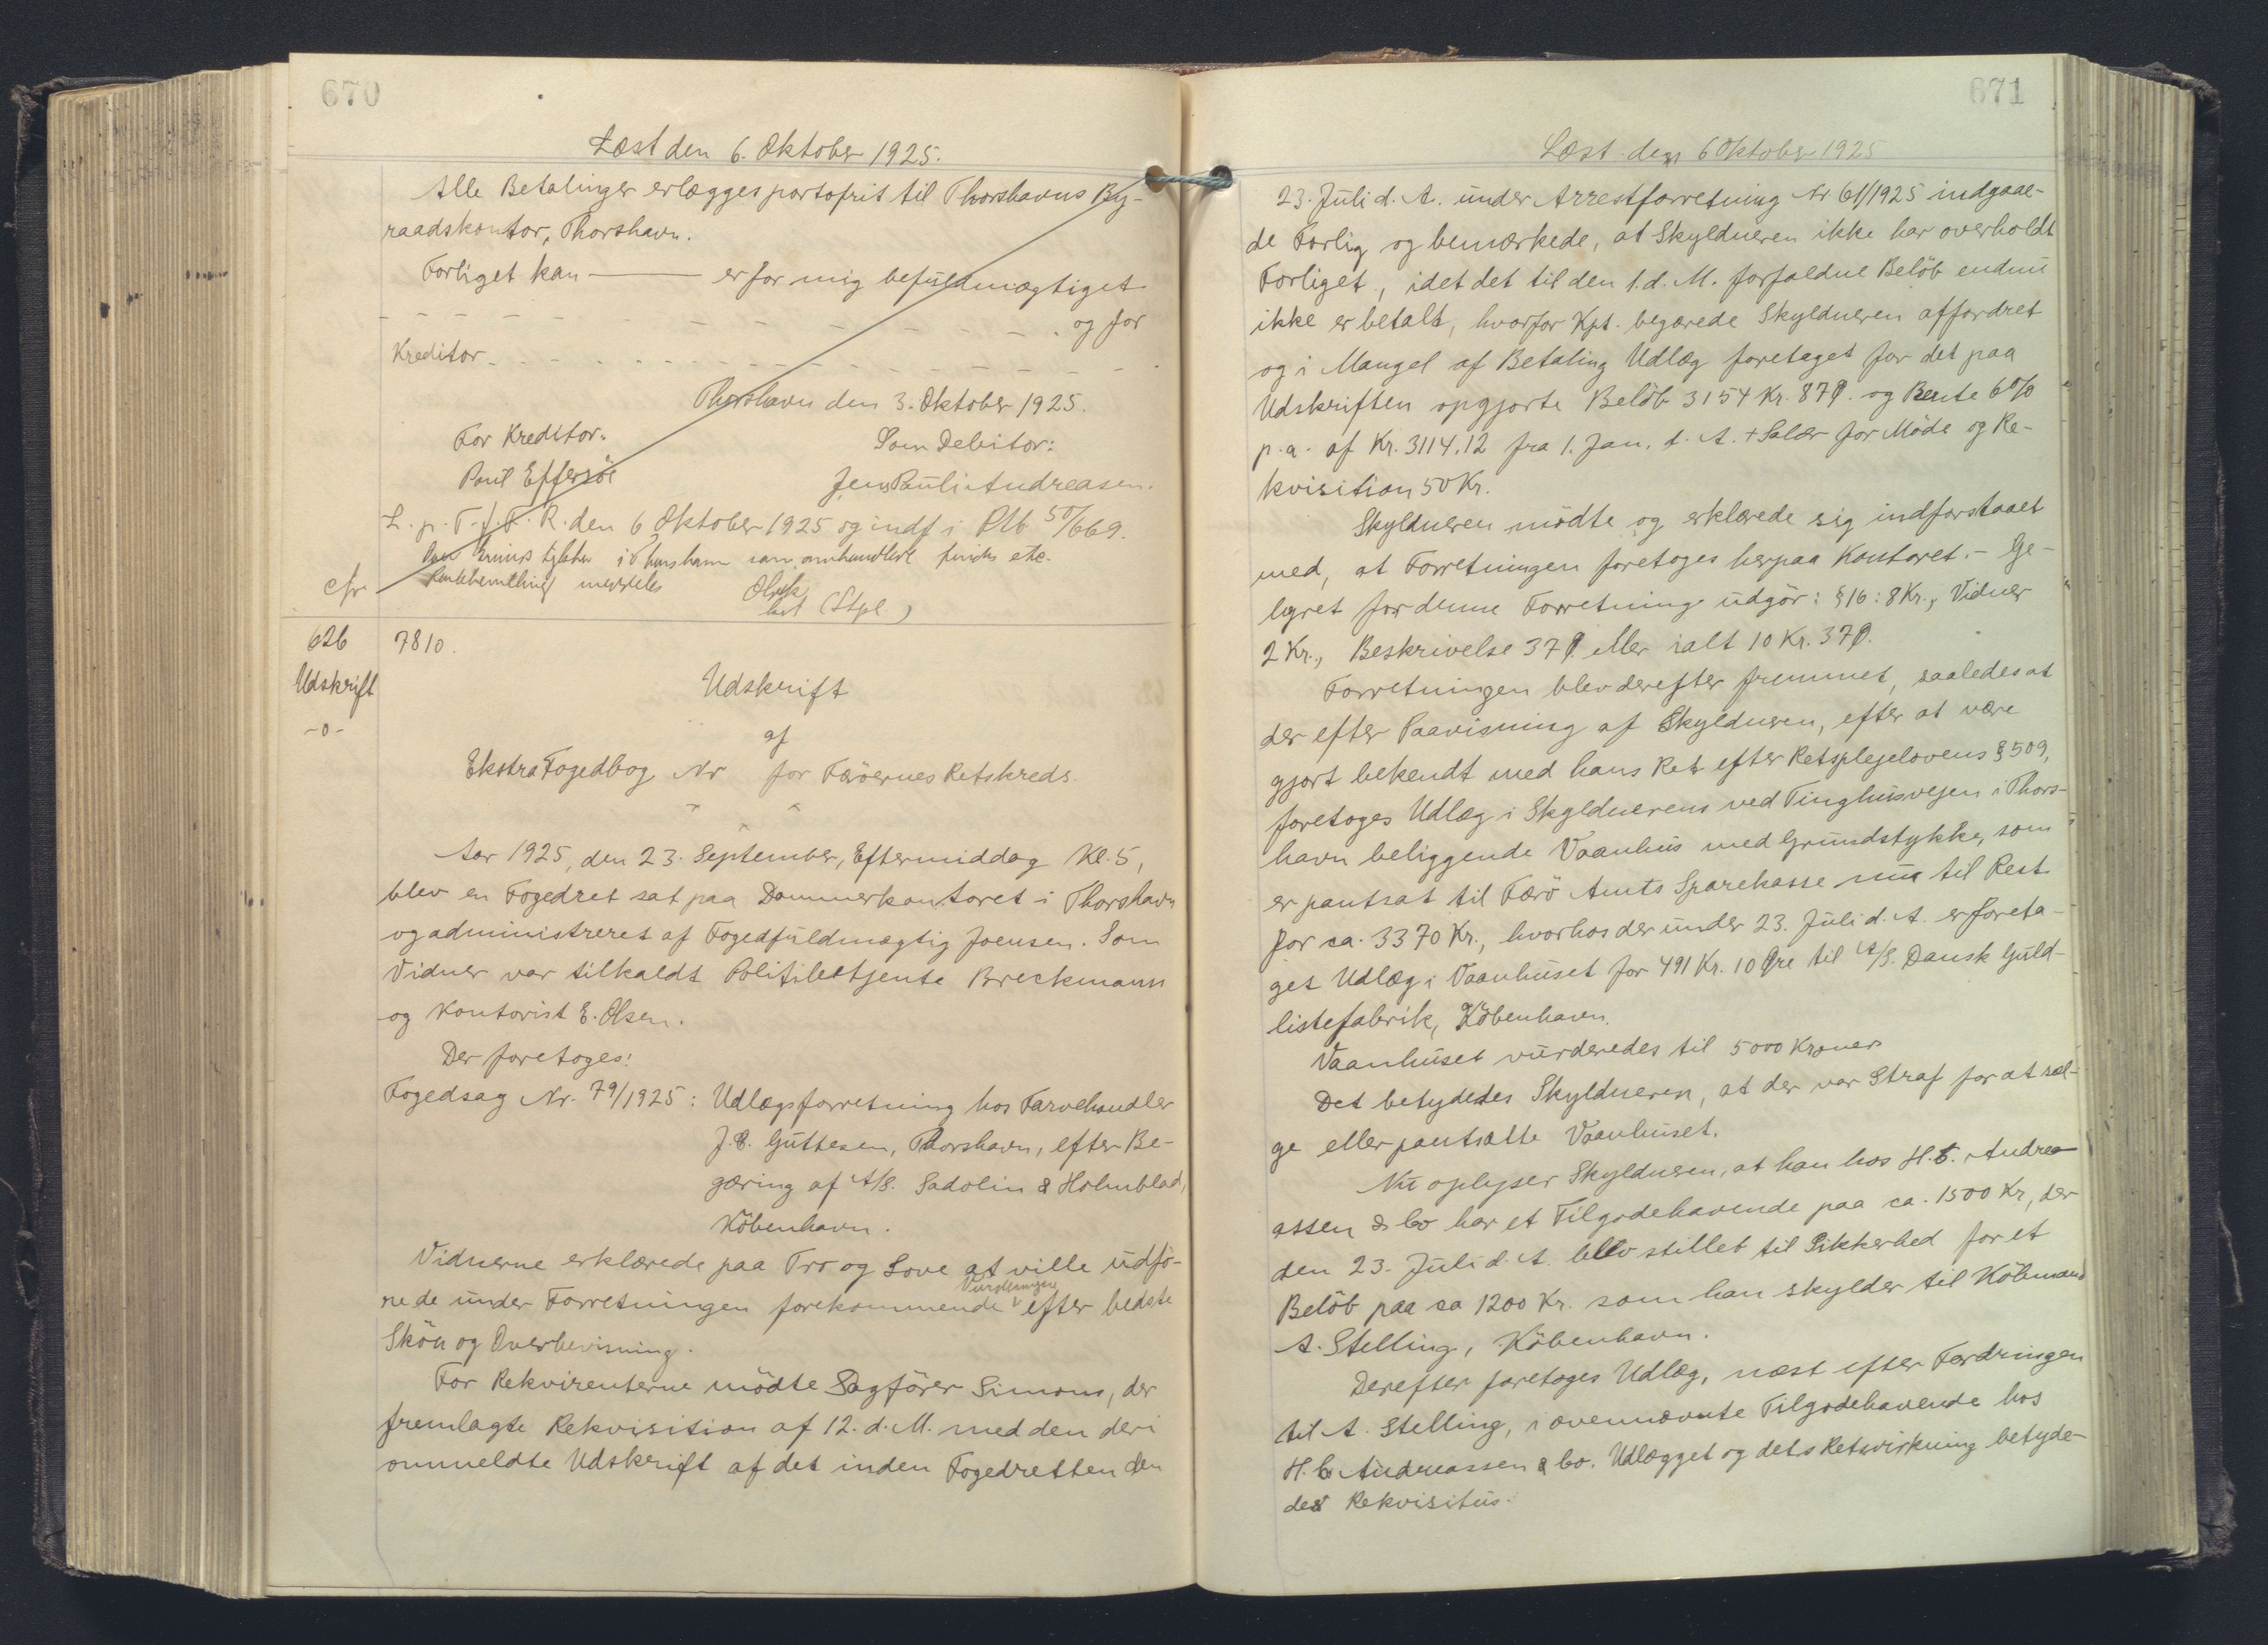 670
Læst den 6. Oktober 1925.
Alle Betalinger erlægges portofrit til Thorshavns By-
raadskontor, Thorshavn.
Forliget kan ——— er for mig befuldmægtiget
- - - - - - - - - - - - - og for
Kreditor - - - - - - - - - - - - -
Thorshavn den 3. Oktober 1925.
For Kreditor: Som Debitor:
Poul Effersöe Jens Pauli Andreasen.
L. p. T. f. F. R. den 6 Oktober 1925 og indf i Ptb 50/669.
i Thorshavn som omhandlet findes etc.
cfr meddeles
(Stpl.)
626 7810.
Udskrift Udskrift
-o- af
Ekstra Fogedbog Nr for Færöernes Retskreds.
Aar 1925, den 23. September, Eftermiddag Kl. 5,
blev en Fogedret sat paa Dommerkontoret i Thorshavn
og administreret af Fogedfuldmægtig Joensen. Som
Vidner var tilkaldt Politibetjente Breckmann
og Kontorist E. Olsen.
Der foretoges:
Fogedsag Nr. 79/1925: Udlægsforretning hos Farvehandler
J. C. Guttesen, Thorshavn, efter Be-
gæring af A/S. Sadolin & Holmblad,
Köbenhavn.
Vidnerne erklærede paa Tro og Love at ville udfö-
Vurderinger
re de under Forretningen forekommende efter bedste
Skön og Overbevisning.
For Rekvirenterne mödte Sagförer Simons, der
fremlagte Rekvisition af 12. d. M. med den deri
ommeldte Udskrift af det inden Fogedretten den
671
Læst den 6 Oktober 1925
23. Juli d. A. under Arrestforretning Nr 61/1925 indgaae-
de Forlig og bemærkede, at Skyldneren ikke har overholdt
Forliget, idet det til den 1. d. M. forfaldne Belöb endnu
ikke er betalt, hvorfor Kpt. begærede Skyldneren affordret
og i Mangel af Betaling Udlæg foretaget for det paa
Udskriften opgjorte Belöb 3154 Kr. 87 Ø. og Rente 6%
p.a. af Kr. 3114.12 fra 1. Jan. d. A. + Salær for Möde og Re-
kvisition 50 Kr.
Skyldneren mödte og erklærede sig indforstaaet
med, at Forretningen foretoges her paa Kontoret. - Ge-
byret for denne Forretning udgör: §16: 8 Kr., Vidner
2 Kr., Beskrivelse 37 Ø. eller ialt 10 Kr. 37 Ø.
Forretningen blev derefter fremmet, saaledes at
der efter Paavisning af Skyldneren, efter at være
gjort bekendt med hans Ret efter Retsplejelovens § 509,
foretoges Udlæg i Skyldnerens ved Tinghusvejen i Thors-
havn beliggende Vaanhus med Grundstykke, som
er pantsat til Færö Amts Sparekasse nu til Rest
for ca. 3370 Kr., hvorhos der under 23. Juli d. A. er foreta-
get Udlæg i Vaanhuset for 491 Kr. 10 Øre til A/S. Dansk Guld-
listefabrik, Köbenhavn.
Vaanhuset vurderedes til 5000 Kroner
Det betydedes Skyldneren, at der var Straf for at sæl-
ge eller pantsætte Vaanhuset.
Nu oplyser Skyldneren, at han hos H. C. Andrea-
assen & Co har et Tilgodehavende paa ca. 1500 Kr, der
den 23. Juli d. A. blev stillet til Sikkerhed for et
Belöb paa ca 1200 Kr. som han skylder til Köbmand
A. Stelling, Köbenhavn.
Derefter foretoges Udlæg, næst efter Fordringen
til A. Stelling, i ovennævnte Tilgodehavende hos
H. C Andreassen & Co. Udlægget og dets Retsvirkning betyde-
des Rekvisitus.